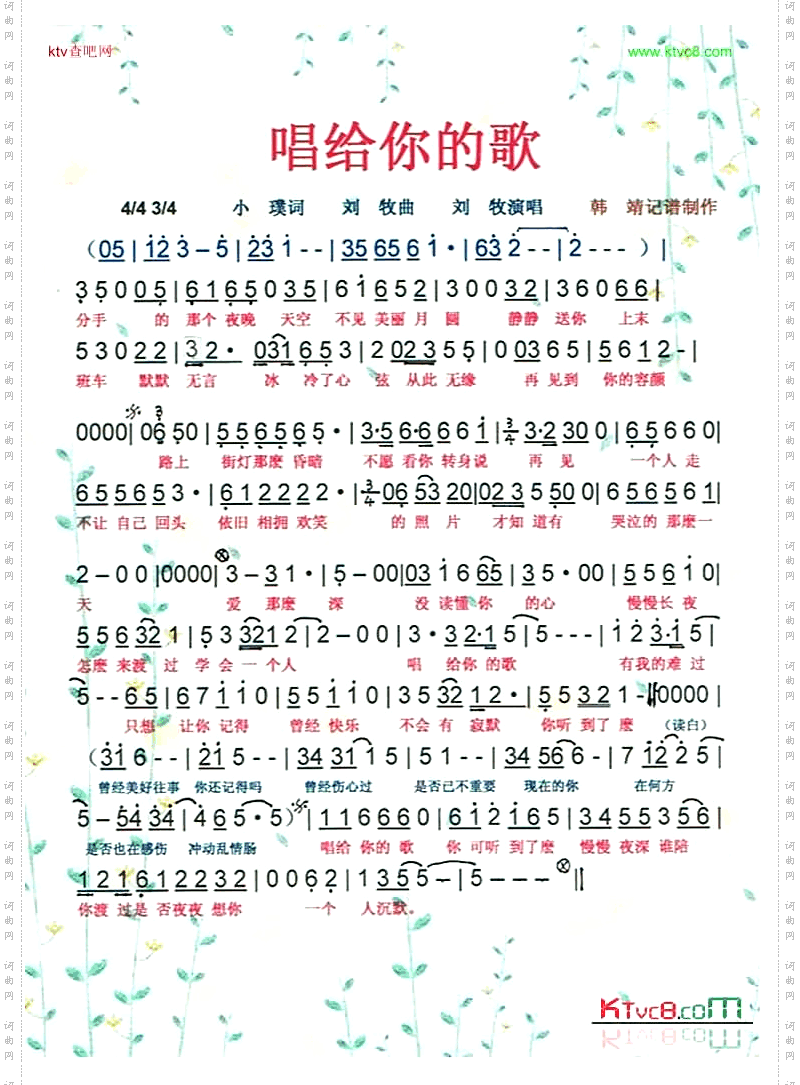 ktv查吧网
www.ktvc8.com
唱给你的歌
4/4 3/4 小 璞词 刘 牧曲 刘 牧演唱 韩 靖记谱制作
(05 | 12 3 – 5 | 23 1 - - | 35 65 6 1 · | 63 2 - - | 2 - - - ) |
3 5 0 0 5 | 6 1 6 5 0 3 5 | 6 1 6 5 2 | 3 0 0 3 2 | 3 6 0 6 6 |
分手 的 那个 夜晚 天空 不见 美丽 月 圆 静静 送你 上末
5 3 0 2 2 | 3 2 · 031 6 5 3 | 2 02 3 5 5 | 0 03 6 5 | 5 6 1 2 - |
班车 默默 无言 冰 冷了心 弦 从此 无缘 再 见到 你的容颜
0000 | 06 50 | 5 5 5 6 5 6 5 · | 3·5 6·6 6 6 1 | 3/4 3·2 30 0 | 6 5 6 6 0 |
路上 街灯那麽 昏暗 不愿 看你 转身说 再 见 一个人 走
6 5 5 6 5 3 · | 6 1 2 2 2 2 · | 3/4 06 53 20 | 02 3 5 50 0 | 6 5 6 5 6 1 |
不让 自己 回头 依旧 相拥 欢笑 的 照 片 才知 道有 哭泣的 那麽一
2 – 0 0 | 0000 | 3 – 3 1 · | 5 – 00 | 03 1 6 65 | 3 5 · 00 | 5 5 6 1 0 |
天 爱 那麽 深 没 读懂 你 的心 慢慢长 夜
5 5 6 32 1 | 5 3 321 2 | 2 – 0 0 | 3 – 3 2·1 5 | 5 - - - | 1 2 3·1 5 |
怎麽 来渡 过 学 会 一 个人 唱 给你 的歌 有我的 难 过
5 - - 6 5 | 6 7 1 1 0 | 5 5 1 1 0 | 3 5 32 12 · | 5 5 32 1 - 0000 |
只想 让你 记得 曾经 快乐 不会 有 寂默 你听 到了 麽 (读白)
(31 6 - - | 21 5 - - | 34 31 1 5 | 51 4 - - | 34 56 6 - | 7 12 2 5 |
曾经美好往事 你还记得吗 曾经伤心过 是否已不重要 现在的你 在何方
5 – 54 34 | 4 65 · 5) | 1 1 6 6 6 0 | 6 1 2 1 6 5 | 3 4 5 5 3 5 6 |
是否也在感伤 冲动乱情肠 唱给 你的 歌 你 可听 到了麽 慢慢 夜深 谁陪
1 2 1 6 1 2 2 3 2 | 0 0 6 2 | 1 3 5 5 – | 5 – – – ||
你渡 过是 否夜夜 想你 一个 人沉默。
KTvc8.com